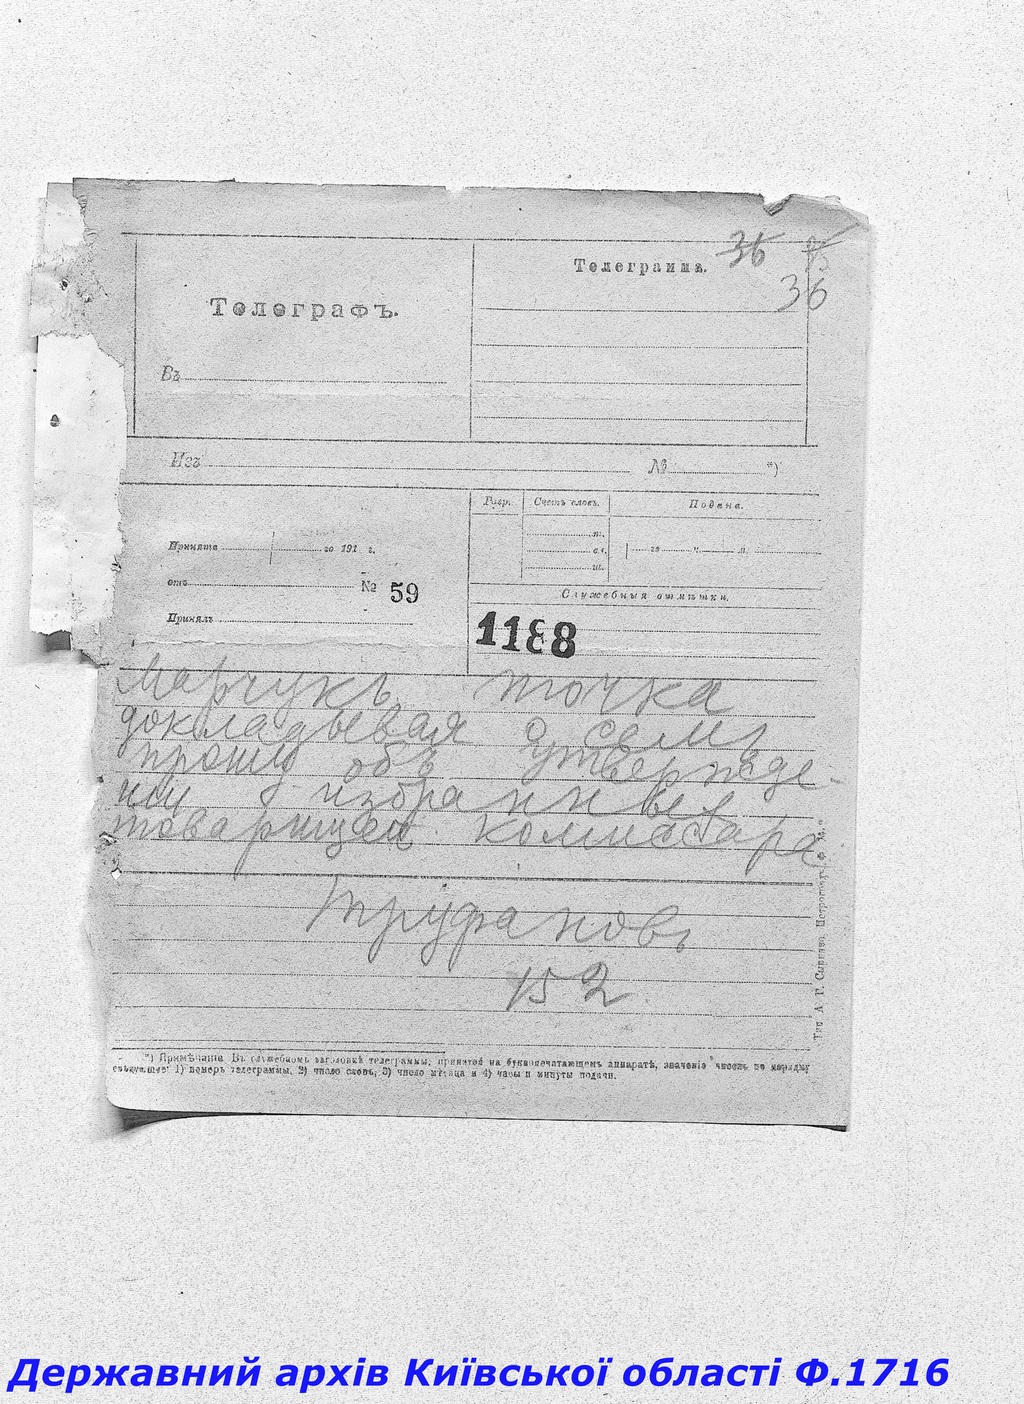 36 35
Телеграмма.
36
Телеграфъ.
Въ
Изъ № *)
Разр. Счетъ словъ. Подана.
Принята го 191 г. го ч. п.
отъ № 59
Служебныя отмѣтки.
Принялъ
1188
Марчукъ точка
докладывая о семъ
прошу объ утвержде-
нiи избранныхъ
товарищей комиссара
Труфановъ
152
*) Примѣчаніе Въ служебномъ заголовкѣ телеграммы, принятой на буквопечатающемъ аппаратѣ, значеніе чиселъ по порядку
слѣдующее: 1) номеръ телеграммы, 2) число словъ, 3) число мѣсяца и 4) часы и минуты подачи.
Тип. А. Г. Сыркина. Петроградъ
Державний архів Київської області Ф.1716